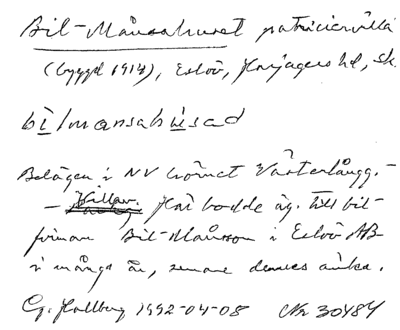 Bil-Månsahuset patriciervilla
(byggd 1914), Eslöv, Harjagers hd, Sk.
bilmansahusad
Belägen i NV hörnet Västerlångg.-
- Här bodde äg. till bil-
firman Bil-Månsson i Eslöv AB
i många år, senare dennes änka.
G. Hallberg 1992-04-08 Nr 30484